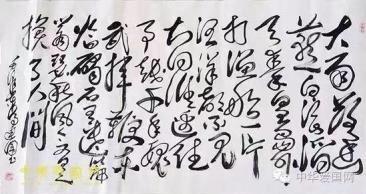 大雨落幽
燕白浪滔
天秦皇岛外
打渔船一片
汪洋都不见
知向谁边往
事越千年魏
武挥鞭东
临碣石有遗篇
萧瑟秋风今又是
换了人间
中华爱国网